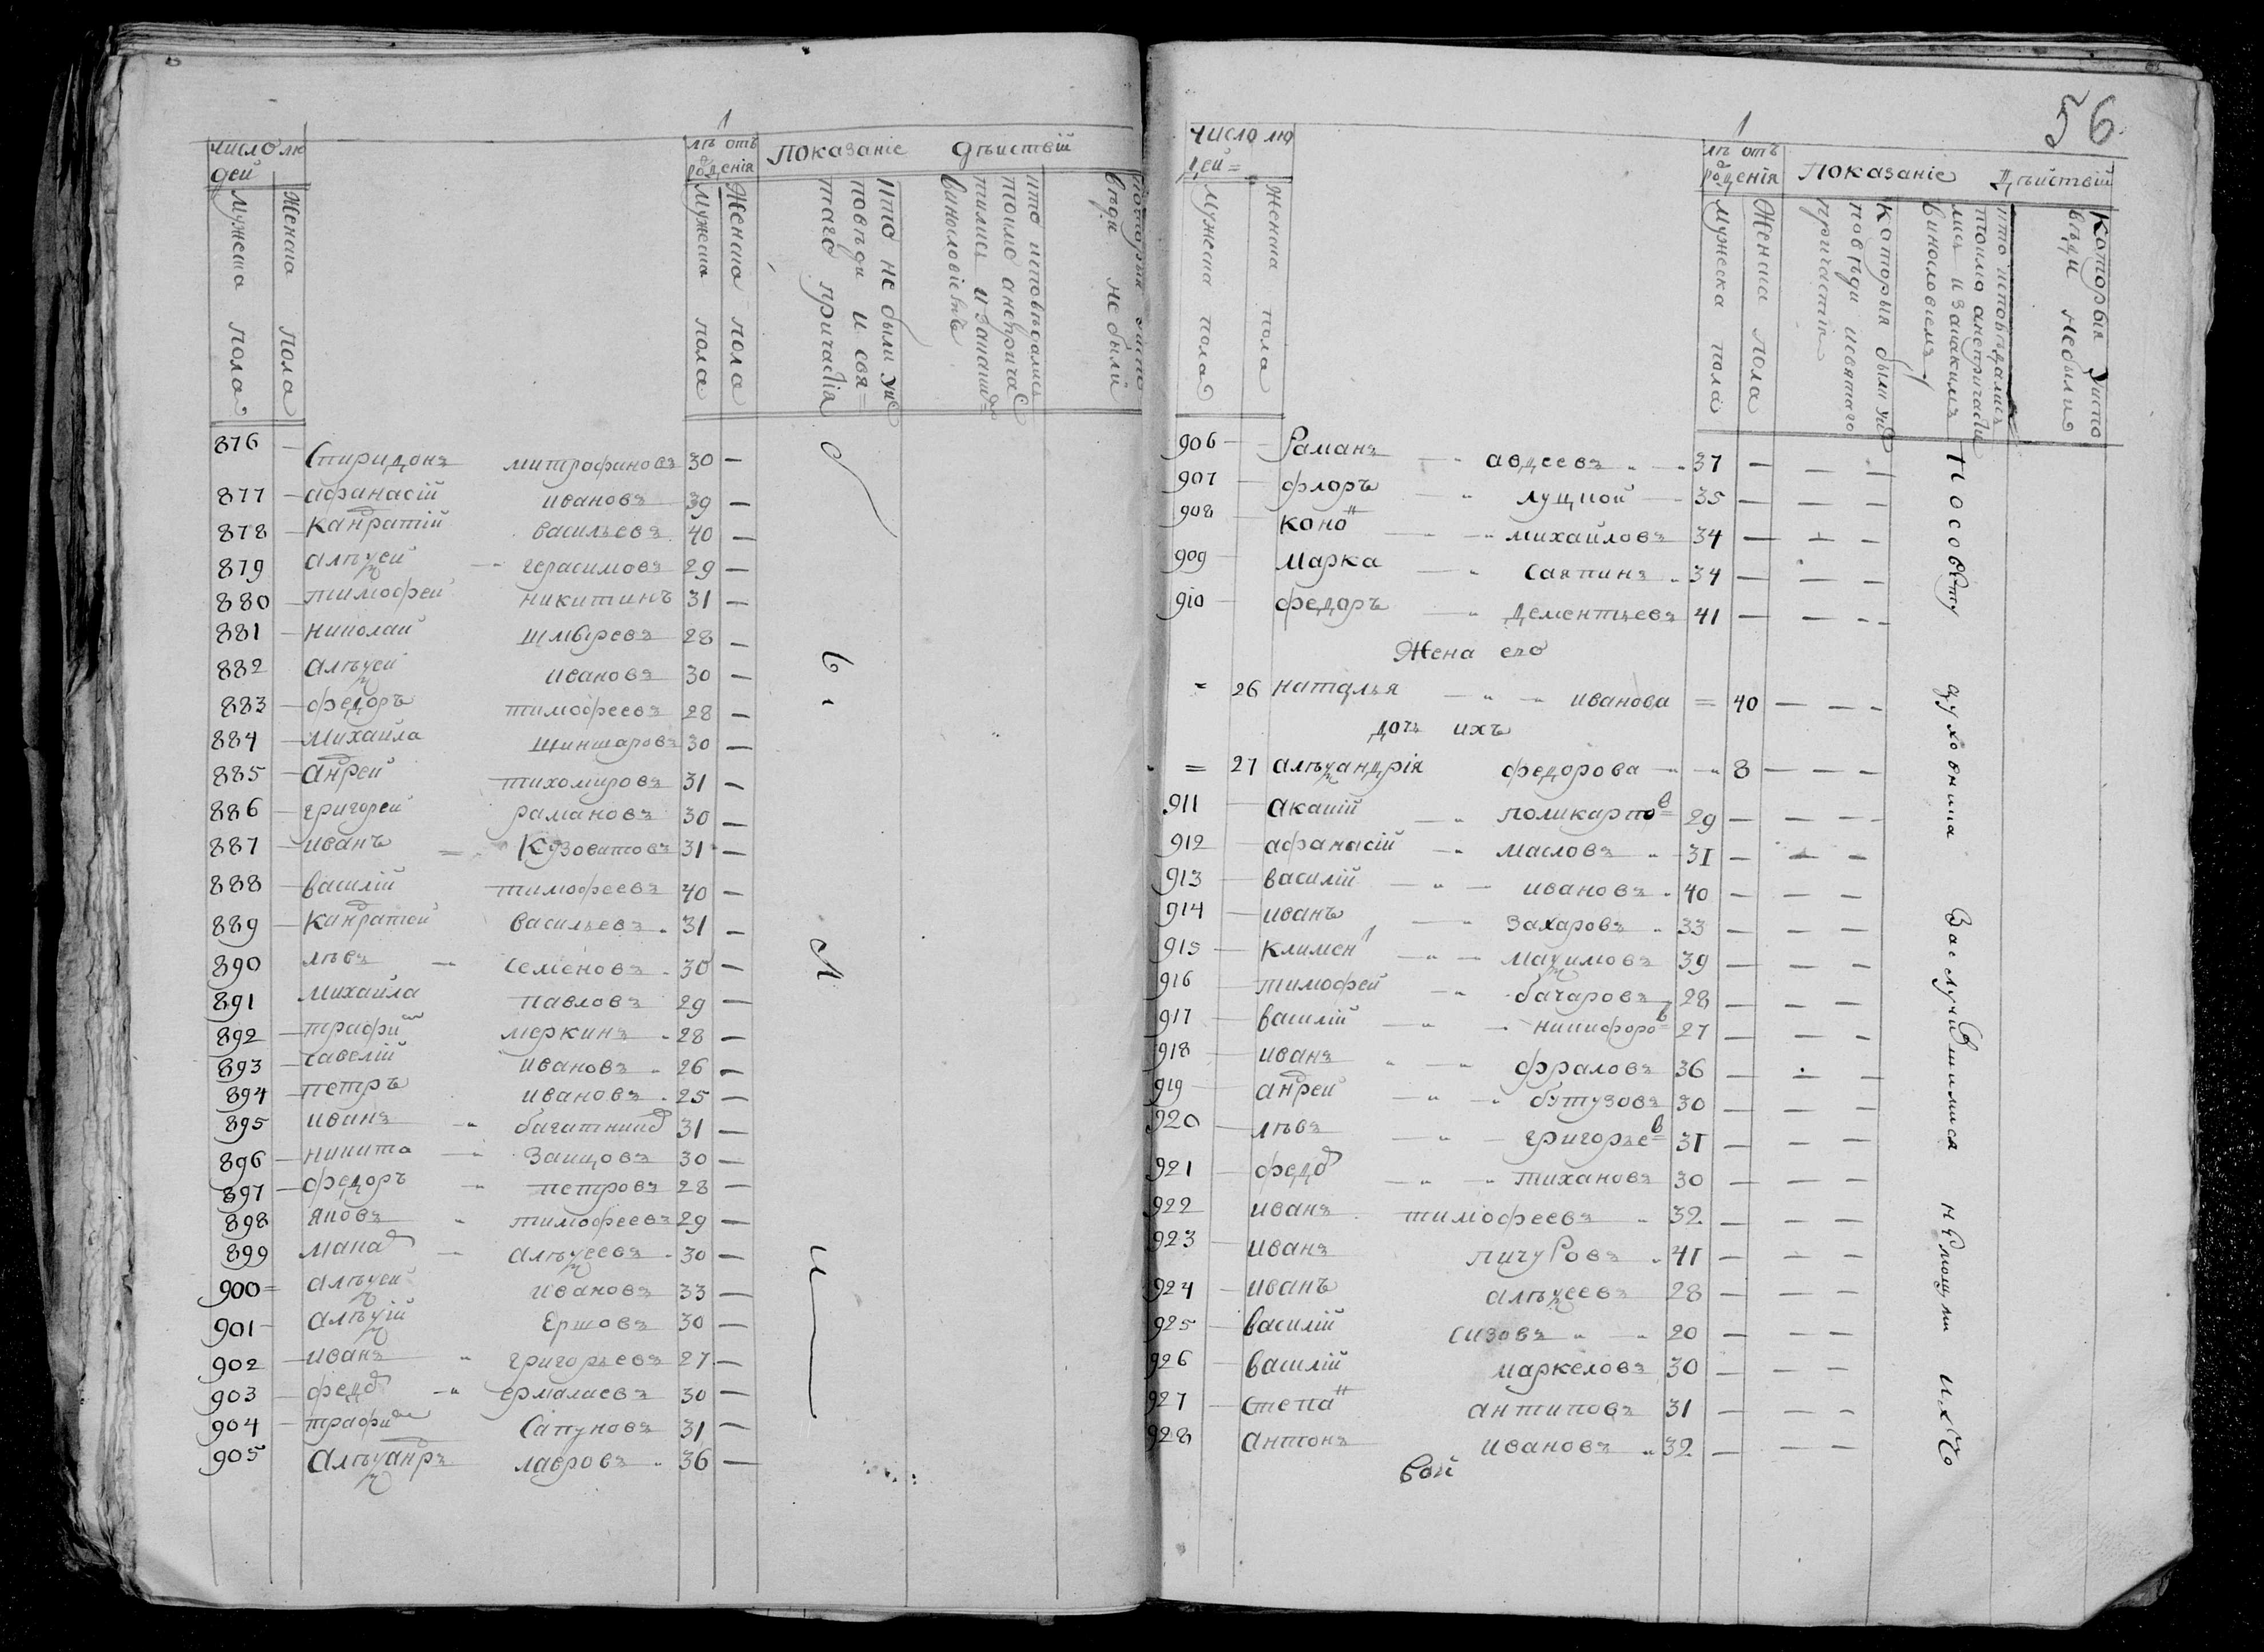 число лю
дей
Мужеска пола
Женска пола
лѣ отъ
рожденія
Мужеска пола
Женска пола
Показаніе дѣиствій
что не были у ис
поведи и свя=
таго причастія
что исповѣдались
тоимо а не прича
тились и за каким=
винословіемъ
Которыя у испо
вѣди не были
876 — Спиридонъ митрофановъ 30 —
877 — афанасій ивановъ 39 —
878 — Кандратій васильевъ 40 —
879 алеѯѣй герасимовъ 29 —
880 — тимофей никитинъ 31 —
881 — николай шмыревъ 28 —
882 алѣѯей ивановъ 30 —
883 — федоръ тимофеевъ 28 —
884 — михаила шиншаровъ 30 —
885 — андрей тихомировъ 31 —
886 — григорей рамановъ 30 —
887 — иванъ Кузовитовъ 31 —
888 — василій тимофеевъ 40 —
889 — Кандратей васильевъ 31 —
890 лѣвъ семеновъ 30 —
891 михаила павловъ 29 —
892 — трафим меркинъ 28 —
893 — савелій ивановъ 26 —
894 — петръ ивановъ 25 —
895 иванъ багатни 31 —
896 — никита Заицовъ 30 —
897 — федоръ петровъ 28 —
898 яковъ тимофеевъ 29 —
899 мака алѣѯеевъ 30 —
900 = алѣѯей ивановъ 33 —
901 — алѣѯій Ершовъ 30 —
902 — иванъ григорьевъ 27 —
903 — федо ермалаевъ 30 —
904 — трафим Сапуновъ 31 —
905 Алѣѯандръ лавровъ 36 —
б
ы
л
и
56
число лю
дей =
Мужеска пола
Женска пола
лѣ отъ
рожденія
Мужеска пола
Женска пола
Показаніе Дѣиствій
Которыя были у ис
поведи и святаго
причастія
что исповѣдались
тоимо а не причасти
лись и за какимъ
винословіемъ
Которыя у испо
вѣди не были
906 — Раманъ авдеевъ 37 — — —
907 — флоръ луцкой 35 — — —
908 — коно н михайловъ 34 — — —
909 — марка саяпинъ 34 — — —
910 — федоръ Дементьевъ 41 — — —
Жена его
= 26 наталья иванова = 40 — — —
дочь ихъ
= 27 алѣѯандрія федорова 8 — — —
911 — акакій поликарпов 29 — — —
912 — афанасій масловъ 31 — — —
913 — василій ивановъ 40 — — —
914 — иванъ Захаровъ 33 — — —
915 — климент маѯимовъ 39 — — —
916 — тимофей бачаровъ 28 — — —
917 — василій никифоров 27 — — —
918 — иванъ фраловъ 36 — — —
919 — андрей бутузовъ 30 — — —
920 — лѣвъ григорьев 31 — — —
921 — федо тихановъ 30 — — —
922 иванъ тимофеевъ 32 — — —
923 иванъ пичуровъ 41 — — —
924 — иванъ алѣѯеевъ 28 — — —
925 — василій сизовъ 20 — — —
926 — василій маркеловъ 30 — — —
927 — степан антиповъ 31 — — —
928 — антонъ ивановъ 32 — — —
По совѣту духовника За случившимися нѣмощми ихъ
вой